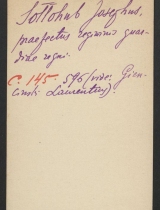 Sottohub Josephus,
praefectus regiminis guar-
diae regni.
C. 145. 596 (vide: Gien-
cinski Laurentius).